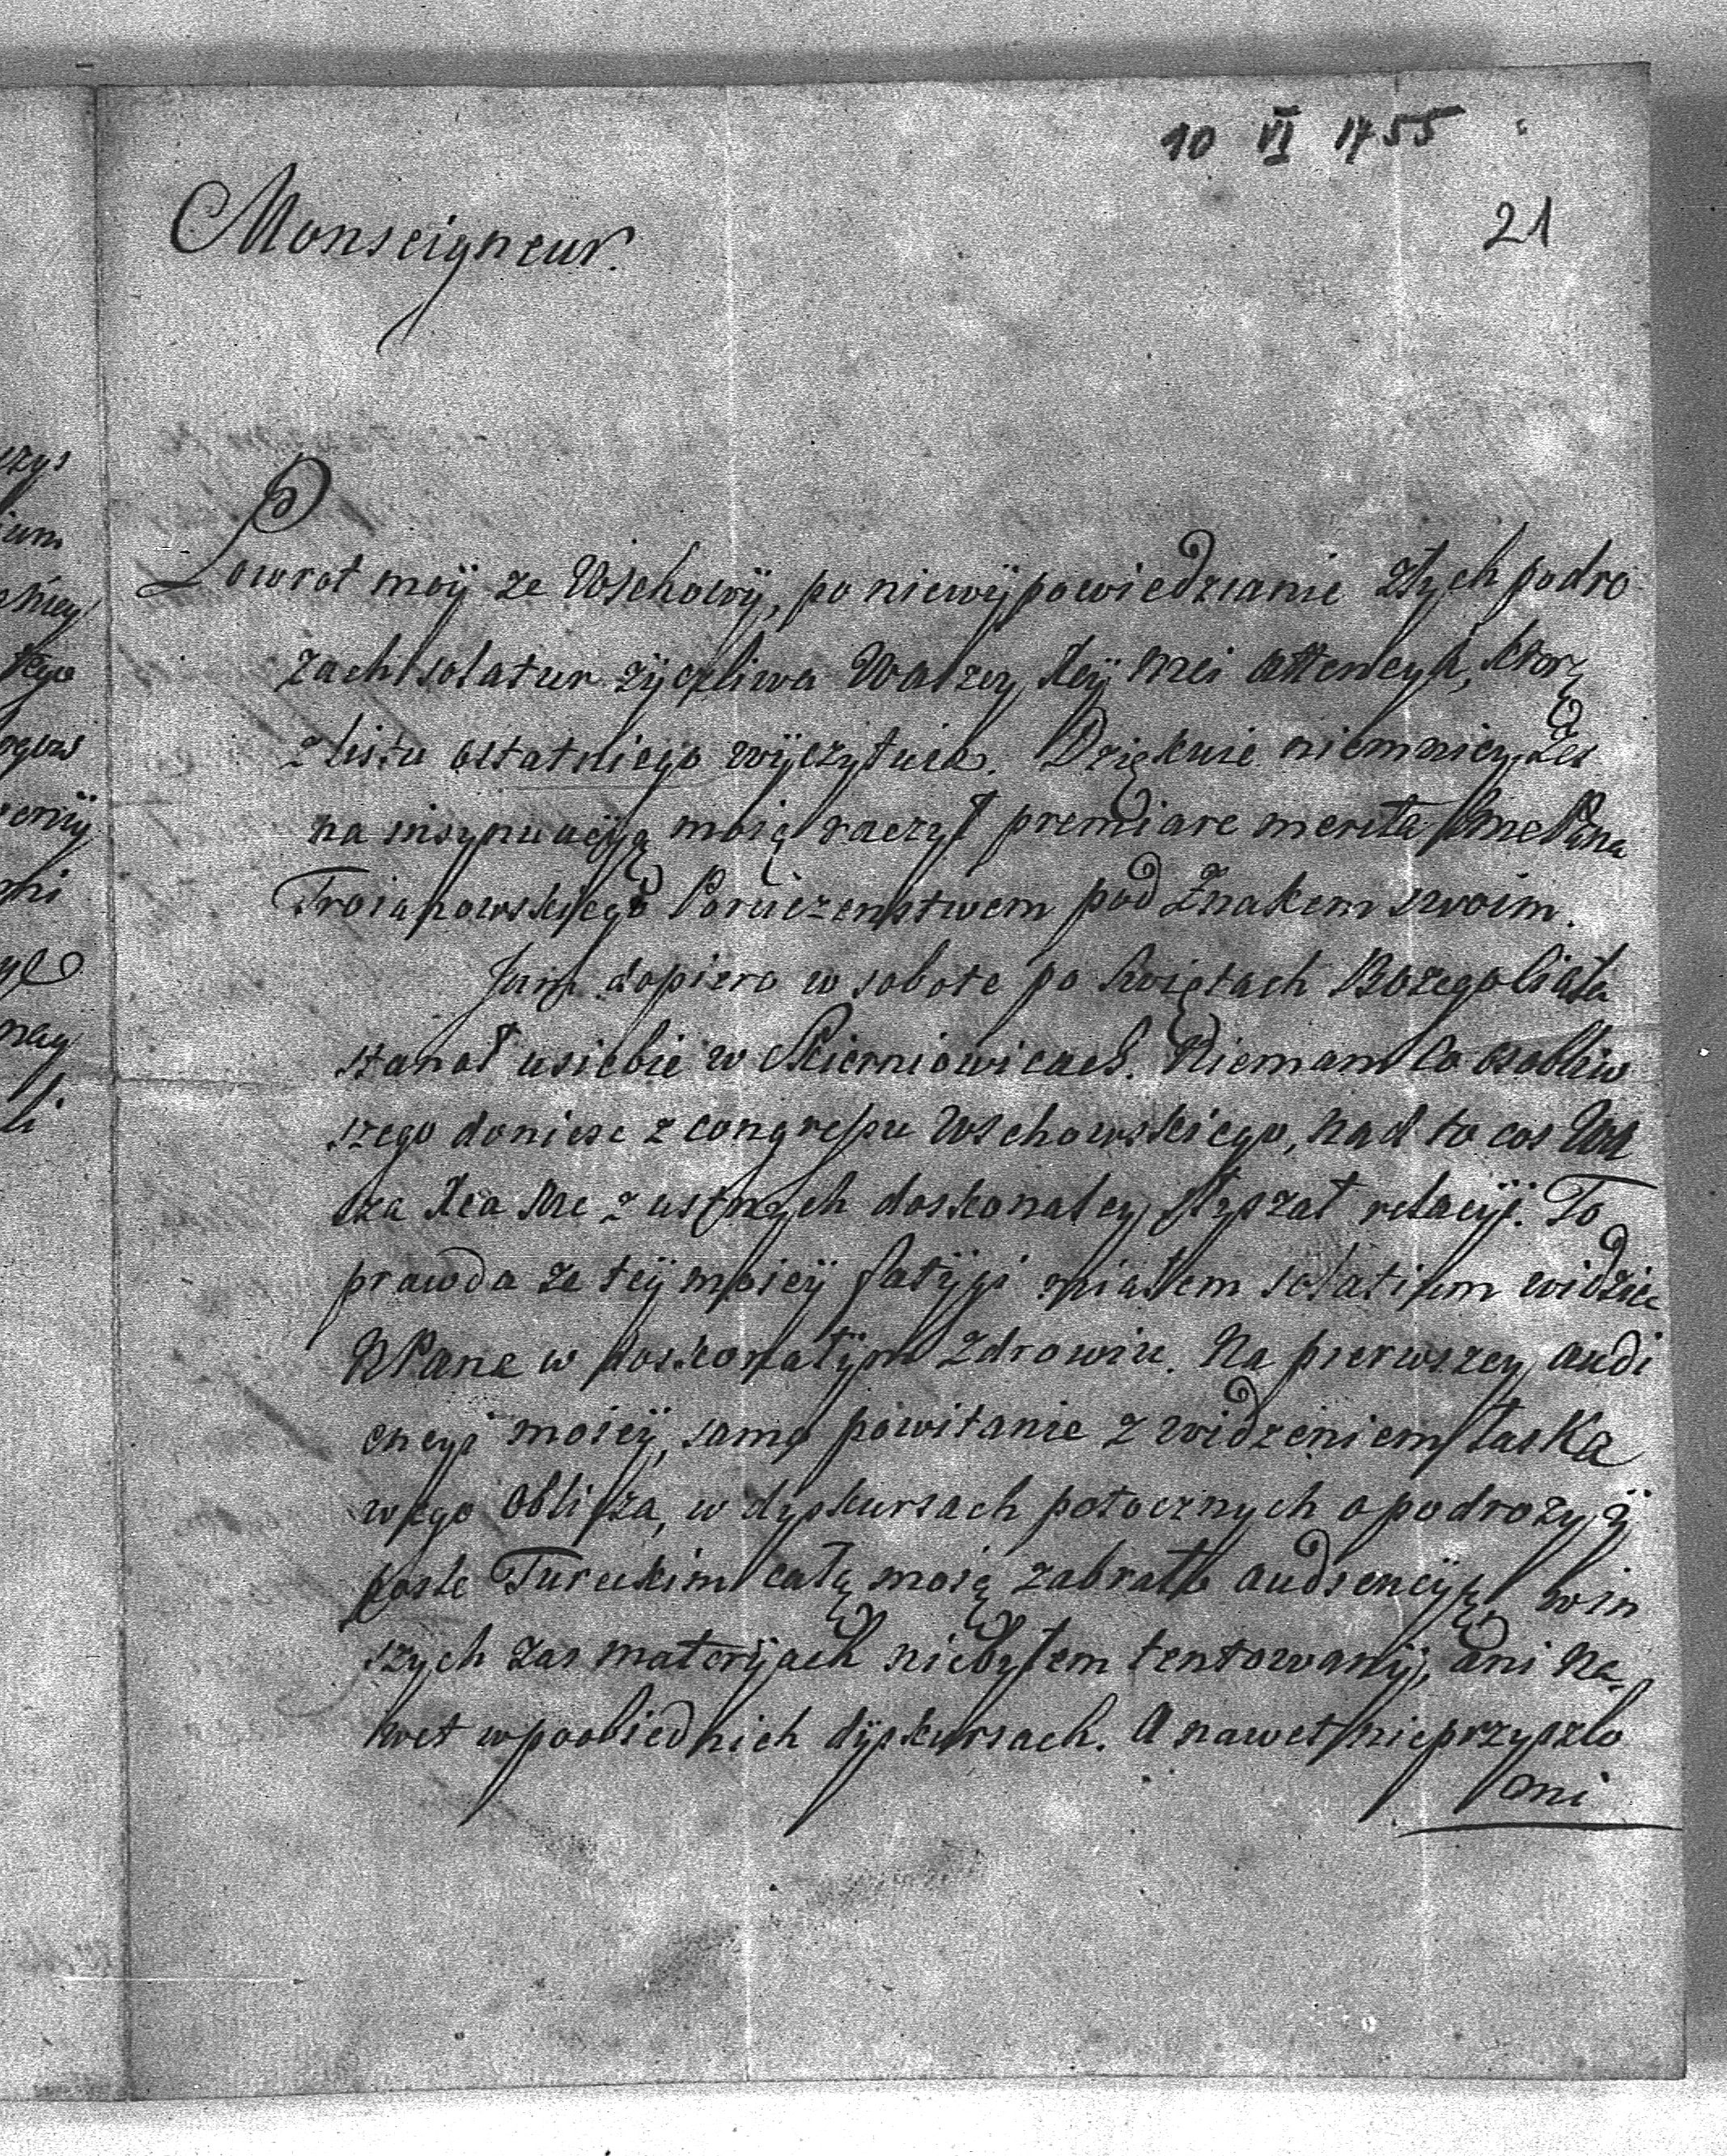 10 VI 1755
21
Monseigneur.
Powrot moÿ ze Wschowÿ, po niewÿpowiedzianie złych podro
zach solatur życzliwa Waszey Xcÿ Mci attencya, ktorą
z listu ostatniego wÿczytuie. Dziękuie niemniey żes
na insynuacÿą moią raczył premiare merita Jmc Pana
Troianowskiego Poruczenstwem pod Znakem swoim.
Jam dopiero w sobote po Swiętach Bozego Ciała
stanoł u siebie w Skierniewicach. Niemam co osobliw
szego doniesc z congressu Wschowskiego, nad to cos Wa
sza Xca Mc z ustnych doskonaley słyszał relacÿi. To
prawda ze teÿ moieÿ fatÿgi miałem solatium widziec
KPana w doskonałÿm Zdrowiu. Na pierwszey audi
encyi moieÿ, samo powitanie z widzeniem łaska
wego oblicza, w dyskursach potocznych o podrozy ÿ
posle Tureckim całą moią zabrało audiencyą, w in
szych zas materÿach niebyłem tentowanÿ, ani na
wet w poobiednich dÿskursach. A nawet nieprzyszło
mi
ney
li